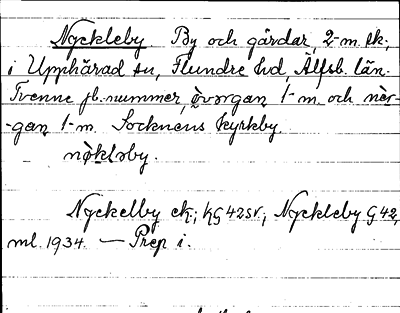 Nyckleby By och gårdar, 2-m. sk.
i Upphärad sn, Flundre hd, Älfsb. län.
Tvenne jb.nummer, òvərgan 1-m. och nèr-
-gan 1-m. Socknens kyrkby.
nøkləby.
Nyckelby ek; KG 42 sv., Nyckleby G 42,
ml. 1934. — Prep i.